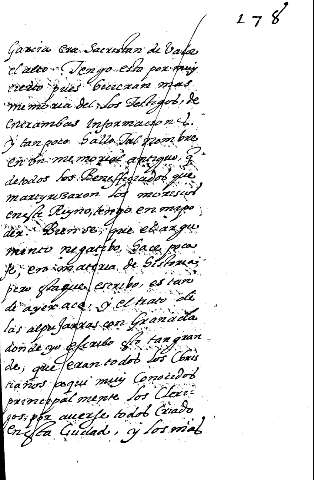 178
Garcia era Sacristan de Vala
el alto. Tengo esto por muy
cierto pues hizieran mas
memoria del, los testigos, de
entrambas informaciones.
Y tan poco hallo tal nombre
en un memorial antiguo, q
de todos los Beneficiados que
martyrizaron los moriscos
en este Reyno, tengo en mi po
der. Bien se, que el argu
mento negatibo, hace poca
fe, en materia de Historia;
pero
escribo, es tan
de ayer aca, y el trato de
las alpujarras con Granada
donde yo escribo tan gran
de, que eran todos los Chris
tianos aqui muy conocidos
principalmente los Cleri
gos, por averse todos criado
en esta Ciudad, y los mas